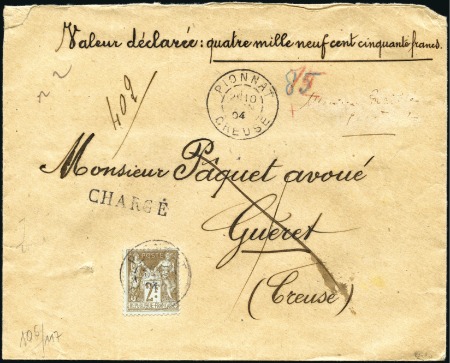 Valeur déclarée : quatre mille neuf cent cinquante francs.
402
PIONNAT
CREUSE
04
85
Monsieur Pâquet avoué
CHARGÉ
Guéret
(Creuse)
POSTE
2F
106/117